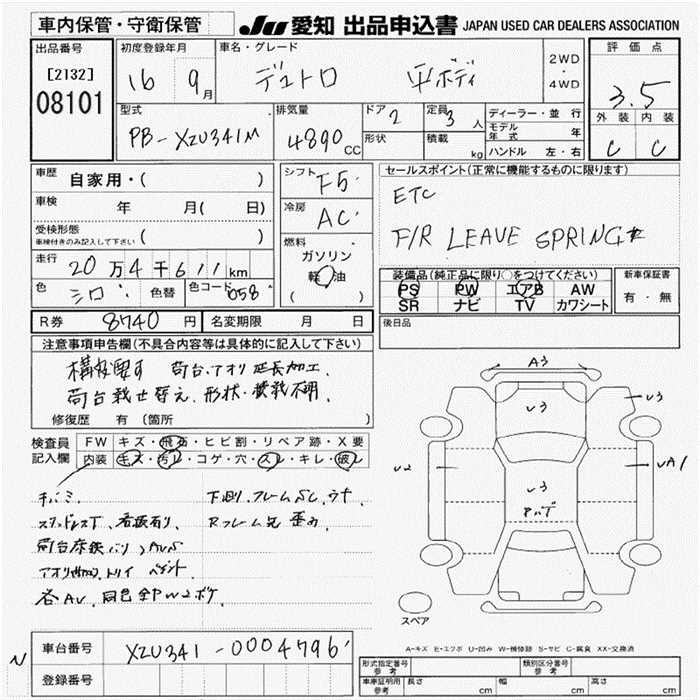 車内保管・守衛保管
JU 愛知 出品申込書 JAPAN USED CAR DEALERS ASSOCIATION
出品番号
[2132]
08101
初度登録年月
16 9月
車名・グレード
デュトロ 平ボディ
2WD
・
4WD
評価点
3.5
外装 内装
C C
型式
PB-XZU341M
排気量
4890CC
ドア 2
形状
定員 3人
積載 kg
ディーラー・並行
モデル年式 年
ハンドル 左・右
車歴
自家用・( )
車検
年 月( 日)
受検形態
車検付きのみ記入して下さい ( )
走行
20万4千611km
色 シロ 色替 色コード 058
シフト F5
冷房 AC
燃料
ガソリン
軽油
( )
セールスポイント(正常に機能するものに限ります)
ETC
F/R LEAVE SPRING
装備品(純正品に限り○をつけてください)
PS PW エアB AW
SR ナビ TV カワシート
新車保証書
有・無
後日品
R券 8740円
名変期限 月 日
注意事項申告欄(不具合内容等は具体的に記入して下さい)
構変要す 荷台、アオリ延長加工、
荷台載せ替え、形状・積載不明
修復歴 有 (箇所 )
検査員記入欄
FW キズ・飛石・ヒビ割・リペア跡・X要
内装 キズ・汚レ・コゲ・穴・スレ・キレ・破レ
下廻り、フレームS
看板有り、
Rフレーム 歪み、
荷台床鉄
各AU、同色全PW2ボケ、
A3
U3
U3
U2
UA1
U3
スペア
A-キズ E-エクボ U-凹み W-補修跡 S-サビ C-腐食 XX-交換済
N
車台番号 XZU341-0004796
登録番号
形式指定番号 参考
類別区分番号 参考
車庫証明用 参考
長さ cm
幅 cm
高さ cm